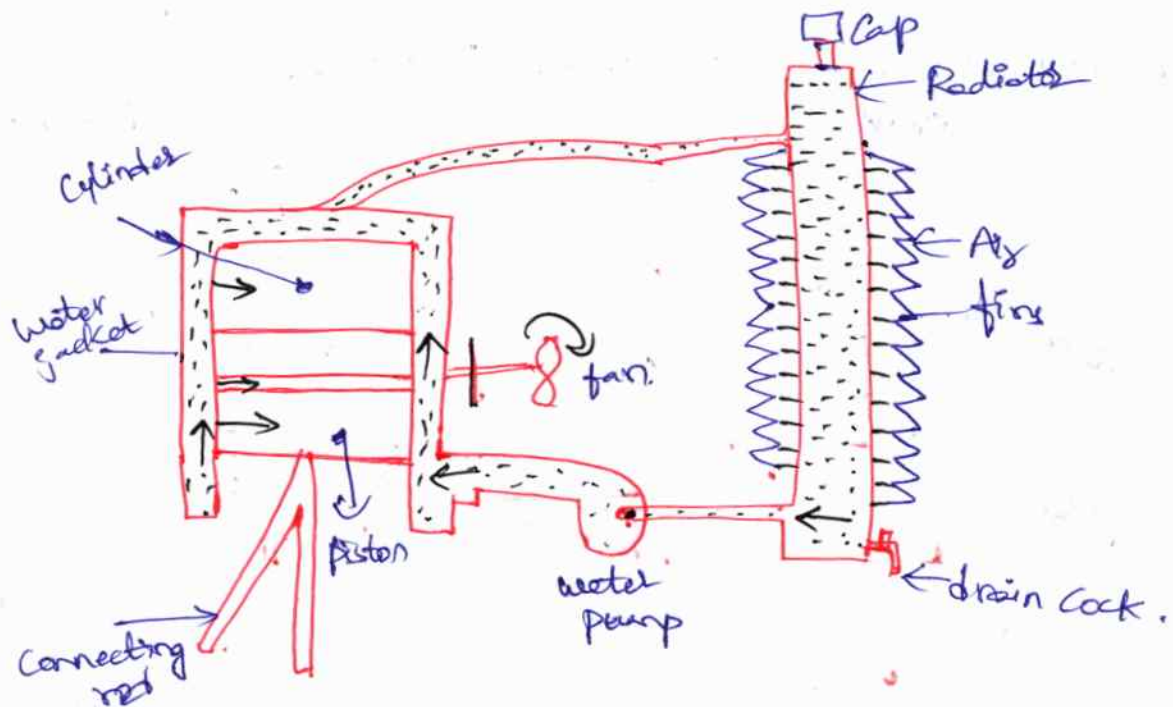 Cap
Radiator
Cylinder
Air
fins
Water
Jacket
fan.
Piston
water
pump
drain Cock.
Connecting
rod